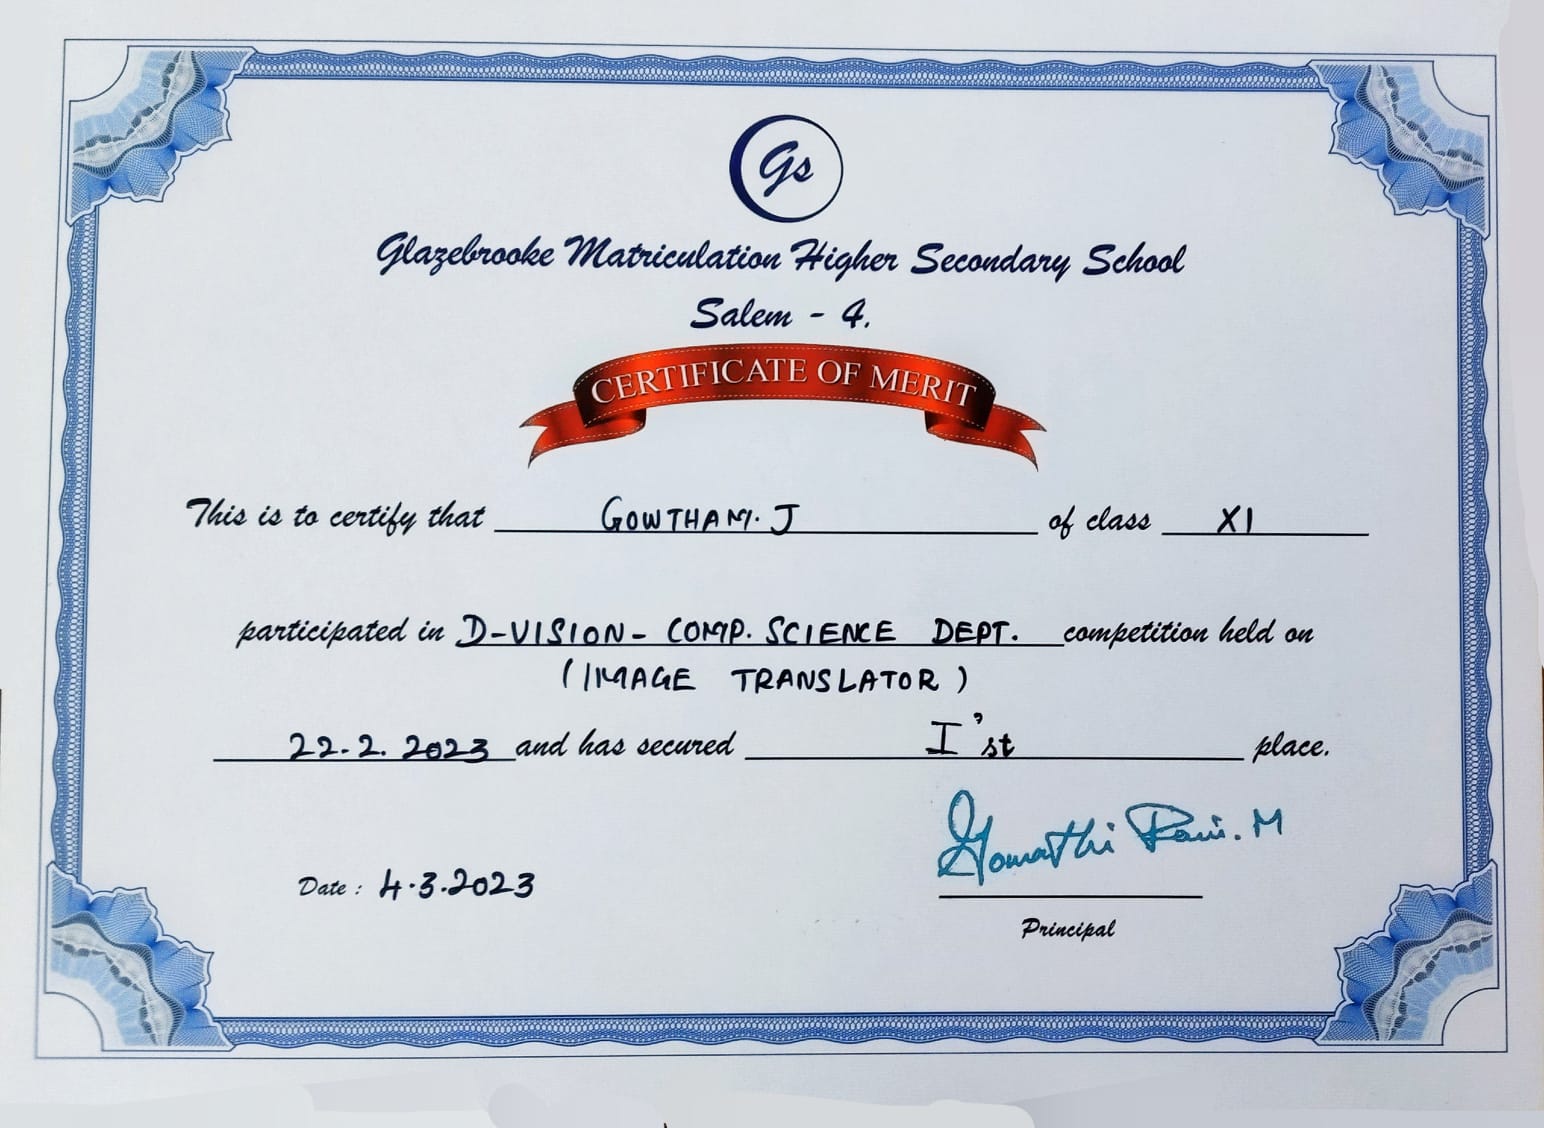 Gs
Glazebrooke Matriculation Higher Secondary School
Salem - 4.
CERTIFICATE OF MERIT
This is to certify that GOWTHAM. J of class XI
participated in D-VISION- COMP. SCIENCE DEPT. competition held on
(IMAGE TRANSLATOR)
22-2. 2023 and has secured I'st place.
Gomathi Rani. M
Date : 4.3.2023
Principal